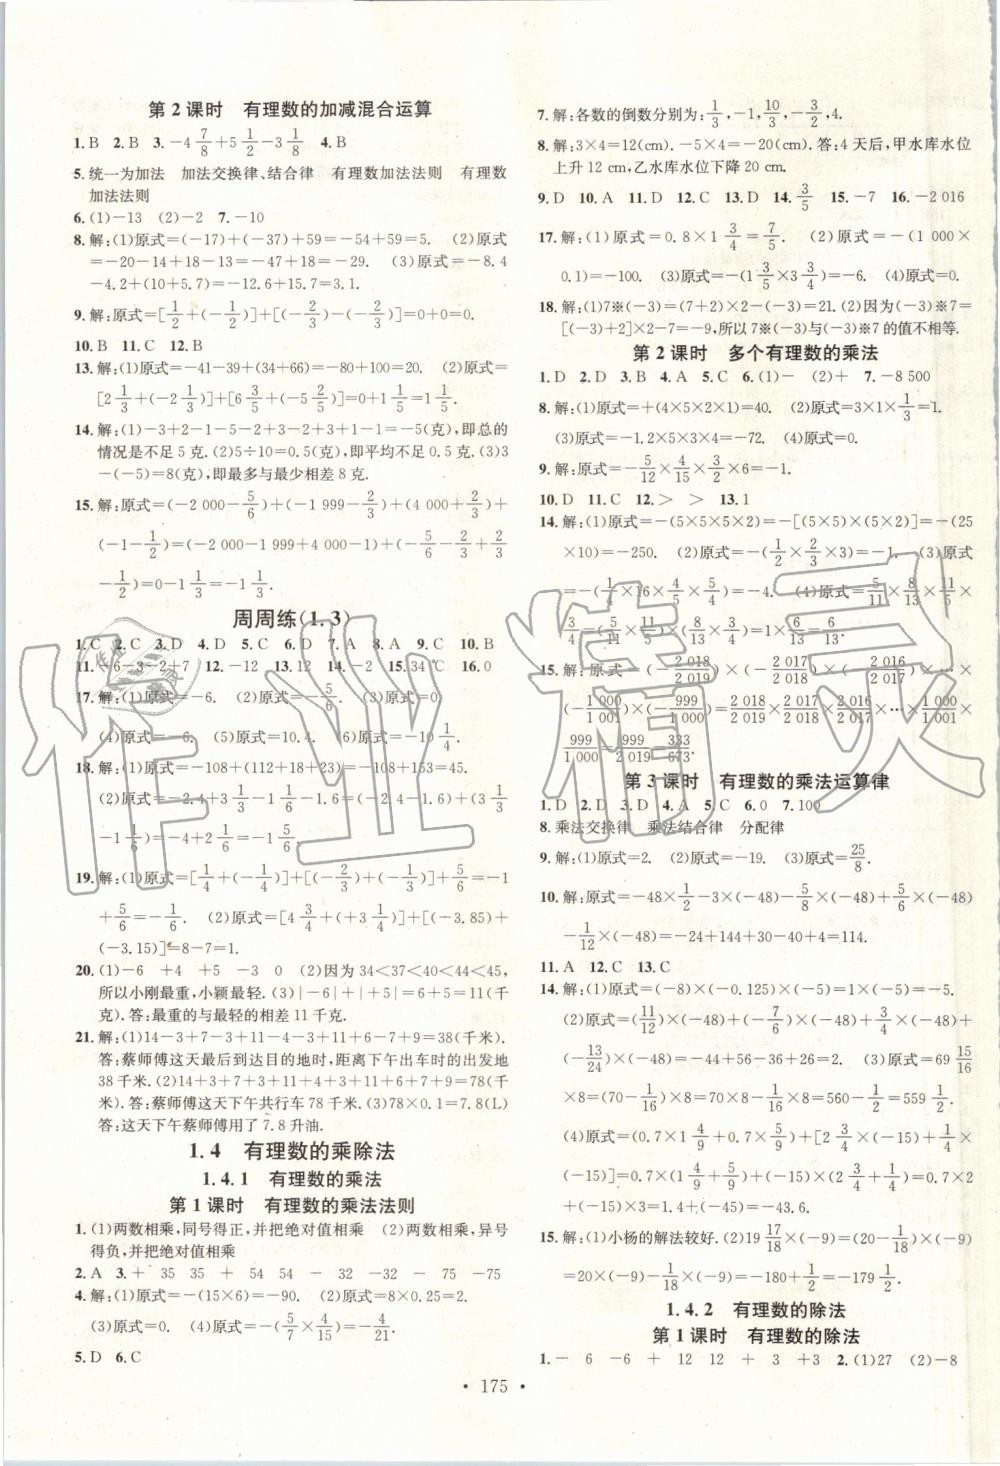 第2课时　有理数的加减混合运算
1.B 2.B 3.-4 7/8+5 1/2-3 1/8 4.B
5.统一为加法　加法交换律、结合律　有理数加法法则　有理数
加法法则
6.(1)-13 (2)-2 7.-10
8.解:(1)原式=(-17)+(-37)+59=-54+59=5. (2)原式
=-20-14+18-13=-47+18=-29. (3)原式=-8.4
-4.2+(10+5.7)=-12.6+15.7=3.1.
9.解:原式=[1/2+(-1/2)]+[(-2/3)-(-2/3)]=0+0=0.
10.B 11.C 12.B
13.解:(1)原式=-41-39+(34+66)=-80+100=20. (2)原式=
[2 1/3+(-2 1/3)]+[6 3/5+(-5 2/5)]=0+1 1/5=1 1/5.
14.解:(1)-3+2-1-5-2+3-2+3+1-1=-5(克),即总的
情况是不足5克.(2)5÷10=0.5(克),即平均不足0.5克.(3)3
-(-5)=8(克),即最多与最少相差8克.
15.解:原式=(-2 000-5/6)+(-1 999-2/3)+(4 000+2/3)+
(-1-1/2)=(-2 000-1 999+4 000-1)+(-5/6-2/3+2/3
-1/2)=0-1 1/3=-1 1/3.
周周练(1.3)
1.C 2.C 3.D 4.D 5.C 6.D 7.A 8.A 9.C 10.B
11.-6-3-2+7 12.-12 13.12 14.-2 15.34℃ 16.0
17.解:(1)原式=-6. (2)原式=-5/6. (3)原式=0.
(4)原式=-6. (5)原式=10.4. (6)原式=-10 1/4.
18.解:(1)原式=-108+(112+18+23)=-108+153=45.
(2)原式=-2.4+3 1/3-1 1/3-1.6=(-2.4-1.6)+(3 1/3
-1 1/2)=-4+2 1/6=-1 5/6.
19.解:(1)原式=[1/4+(-1/4)]+[(-2/3)+(-1/3)]+5/6=-1
+5/6=-1/6. (2)原式=[4 3/4+(+3 1/4)]+[(-3.85)+
(-3.15)]=8-7=1.
20.(1)-6　+4　+5　-3　0　(2)因为34<37<40<44<45,
所以小刚最重,小颖最轻.(3)|-6|+|+5|=6+5=11(千
克).答:最重的与最轻的相差11千克.
21.解:(1)14-3+7-3+11-4-3+11+6-7+9=38(千米).
答:蔡师傅这天最后到达目的地时,距离下午出车时的出发地
38千米.(2)14+3+7+3+11+4+3+11+6+7+9=78(千
米).答:蔡师傅这天下午共行车78千米.(3)78×0.1=7.8(L)
答:这天下午蔡师傅用了7.8升油.
1.4　有理数的乘除法
1.4.1　有理数的乘法
第1课时　有理数的乘法法则
1.(1)两数相乘,同号得正,并把绝对值相乘　(2)两数相乘,异号
得负,并把绝对值相乘
2.A 3.+　35　35　+　54　54　-　32　-32　-　75　-75
4.解:(1)原式=-(15×6)=-90. (2)原式=8×0.25=2.
(3)原式=0. (4)原式=-(5/7×4/15)=-4/21.
5.D 6.C
7.解:各数的倒数分别为:1/3,-1,10/3,-3/2,4.
8.解:3×4=12(cm).-5×4=-20(cm).答:4天后,甲水库水位
上升12 cm,乙水库水位下降20 cm.
9.D 10.A 11.D 12.C 13.D 14.3/5 15.-7 16.-2 016
17.解:(1)原式=0.8×1 3/4=7/5. (2)原式=-(1 000×
0.1)=-100. (3)原式=-(1 3/5×3 3/4)=-6. (4)原式=0.
18.解:(1)7※(-3)=(7+2)×2-(-3)=21.(2)因为(-3)※7=
[(-3)+2]×2-7=-9,所以7※(-3)与(-3)※7的值不相等.
第2课时　多个有理数的乘法
1.D 2.D 3.B 4.A 5.C 6.(1)- (2)+ 7.-8 500
8.解:(1)原式=+(4×5×2×1)=40. (2)原式=3×1×1/3=1.
(3)原式=-1.2×5×3×4=-72. (4)原式=0.
9.解:原式=-5/12×4/15×3/2×6=-1.
10.D 11.C 12.>　> 13.1
14.解:(1)原式=-(5×5×5×2)=-[(5×5)×(5×2)]=-(25
×10)=-250. (2)原式=-(1/2×2/3×3)=-1. (3)原式
=-(1/4×16×4/5×5/4)=-4. (4)原式=5/11×8/13×11/5×
3/4=(5/11×11/5)×(8/13×3/4)=1×6/13=6/13.
15.解:原式=(-2 018/2 019)×(-2 017/2 018)×(-2 016/2 017)×…×
(-1 000/1 001)×(-999/1 000)=2 018/2 019×2 017/2 018×2 016/2 017×…×1 000/1 001×
999/1 000=999/2 019=333/673.
第3课时　有理数的乘法运算律
1.D 2.D 3.D 4.A 5.C 6.0 7.100
8.乘法交换律　乘法结合律　分配律
9.解:(1)原式=2. (2)原式=-19. (3)原式=25/8.
10.解:原式=-48×1/2-3×(-48)-5/8×(-48)+5/6×(-48)
-1/12×(-48)=-24+144+30-40+4=114.
11.A 12.C 13.C
14.解:(1)原式=(-8)×(-0.125)×(-5)=1×(-5)=-5.
(2)原式=(11/12)×(-48)+(-7/6)×(-48)+3/4×(-48)+
(-13/24)×(-48)=-44+56-36+26=2. (3)原式=69 15/16
×8=(70-1/16)×8=70×8-1/16×8=560-1/2=559 1/2.
(4)原式=(0.7×1 4/9+0.7×5/9)+[2 3/4×(-15)+1/4×
(-15)]=0.7×(1 4/9+5/9)+(-15)×(2 3/4+1/4)=0.7×2+
(-15)×3=1.4+(-45)=-43.6.
15.解:(1)小杨的解法较好.(2)19 17/18×(-9)=(20-1/18)×(-9)
=20×(-9)-1/18×(-9)=-180+1/2=-179 1/2.
1.4.2　有理数的除法
第1课时　有理数的除法
1.-　6　-6　+　12　12　+　3　+3 2.(1)27 (2)-8
• 175 •
作业精灵